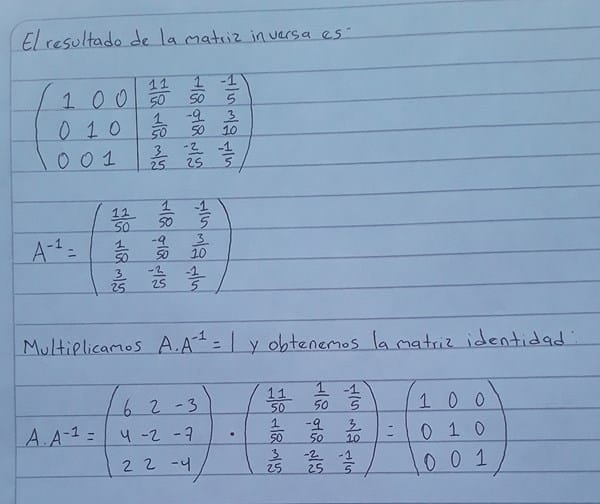 El resultado de la matriz inversa es:
1 0 0 | 11/50 1/50 -1/5
0 1 0 | 1/50 -9/50 3/10
0 0 1 | 3/25 -2/25 -1/5
A⁻¹ = ( 11/50 1/50 -1/5
1/50 -9/50 3/10
3/25 -2/25 -1/5 )
Multiplicamos A.A⁻¹ = 1 y obtenemos la matriz identidad:
6 2 -3 11/50 1/50 -1/5 1 0 0
A.A⁻¹ = 4 -2 -7 · 1/50 -9/50 3/10 = 0 1 0
2 2 -4 3/25 -2/25 -1/5 0 0 1